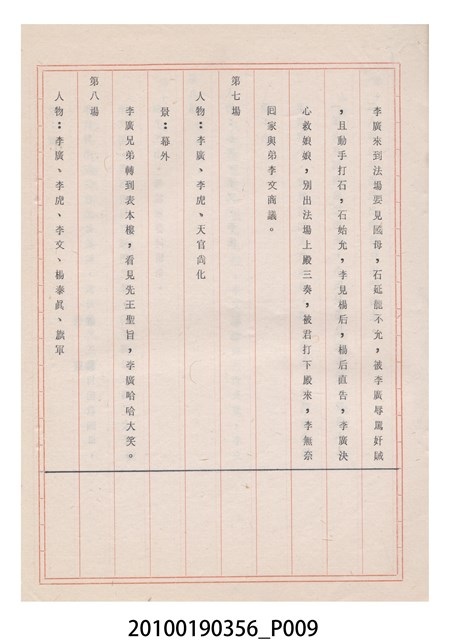 李廣來到法場要見國母，石延龍不允，被李廣辱罵奸賊
，且動手打石，石始允，李見楊后，楊后直告，李廣決
心救娘娘，別出法場上殿三奏，被君打下殿來，李無奈
回家與弟李文商議。
第七場
人物：李廣、李虎、天官尚化
景：幕外
李廣兄弟轉到表本樓，看見先王聖旨，李廣哈哈大笑。
第八場
人物：李廣、李虎、李文、楊泰真、旗軍
20100190356_P009